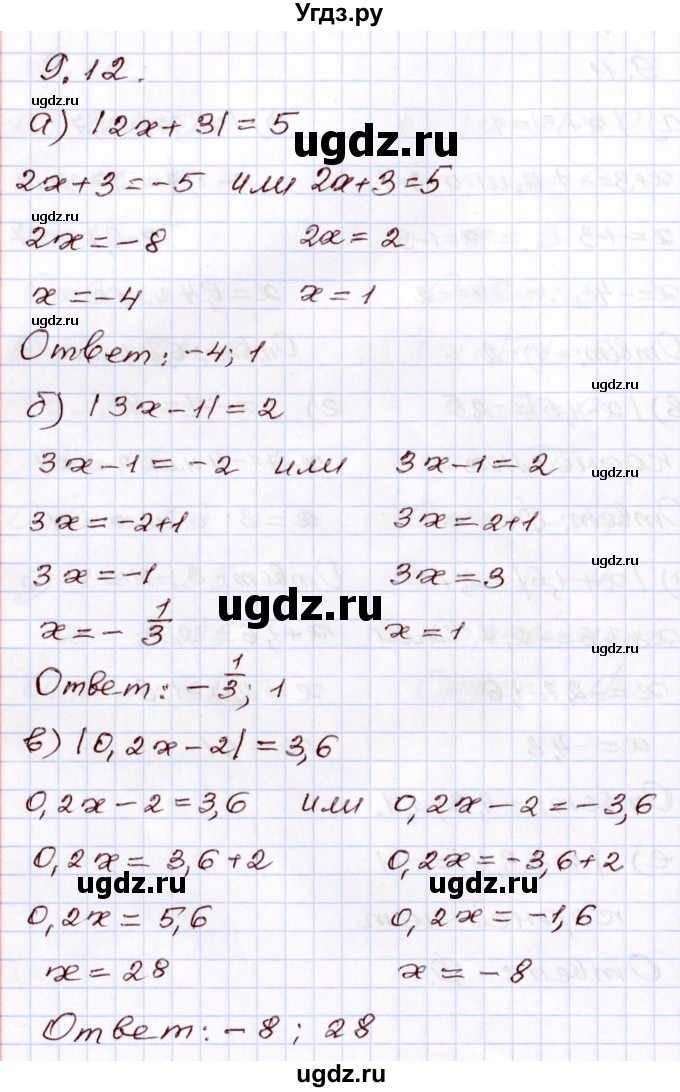 Угдз.ру
9.12.
ugdz.ru
а) |2x+3|=5
ugdz.ru
2x+3=-5 или 2x+3=5
ugdz.ru
2x=-8 2x=2
x=-4 x=1
ugdz.ru
Ответ: -4; 1
ugdz.ru
б) |3x-1|=2
3x-1=-2 или 3x-1=2
ugdz.ru
3x=-2+1 3x=2+1
ugdz.ru
3x=-1 3x=3
ugdz.ru
x=-1/3 x=1
ugdz.ru
Ответ: -1/3; 1
в) |0,2x-2|=3,6
0,2x-2=3,6 или 0,2x-2=-3,6
0,2x=3,6+2 0,2x=-3,6+2
ugdz.ru ugdz.ru
0,2x=5,6 0,2x=-1,6
x=28 x=-8
Ответ: -8; 28
ugdz.ru